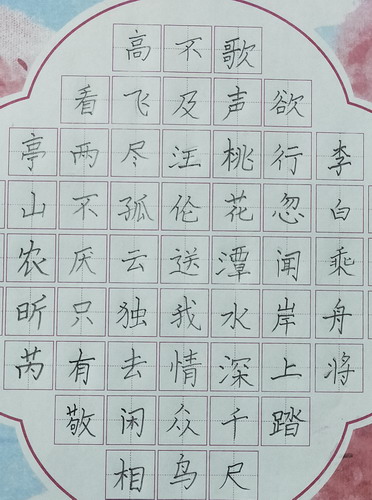 李白乘舟将
欲行忽闻岸上踏
歌声桃花潭水深千尺
不及汪伦送我情众鸟
高飞尽孤云独去闲相
看两不厌只有敬
亭山农昕芮